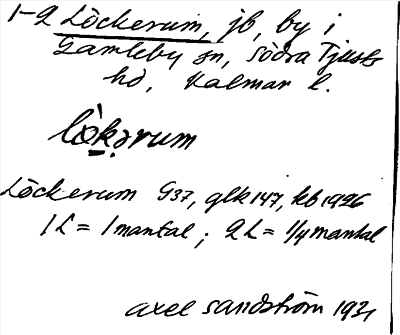 1-2 Löckerum, jb, by i
Gamleby sn, Södra Tjusts
hd, Kalmar l.
lò̀kərum
Löckerum G37, glk 147, kb 1926
1 L = 1 mantal; 2 L = 1/4 mantal
Axel Sandström 1931